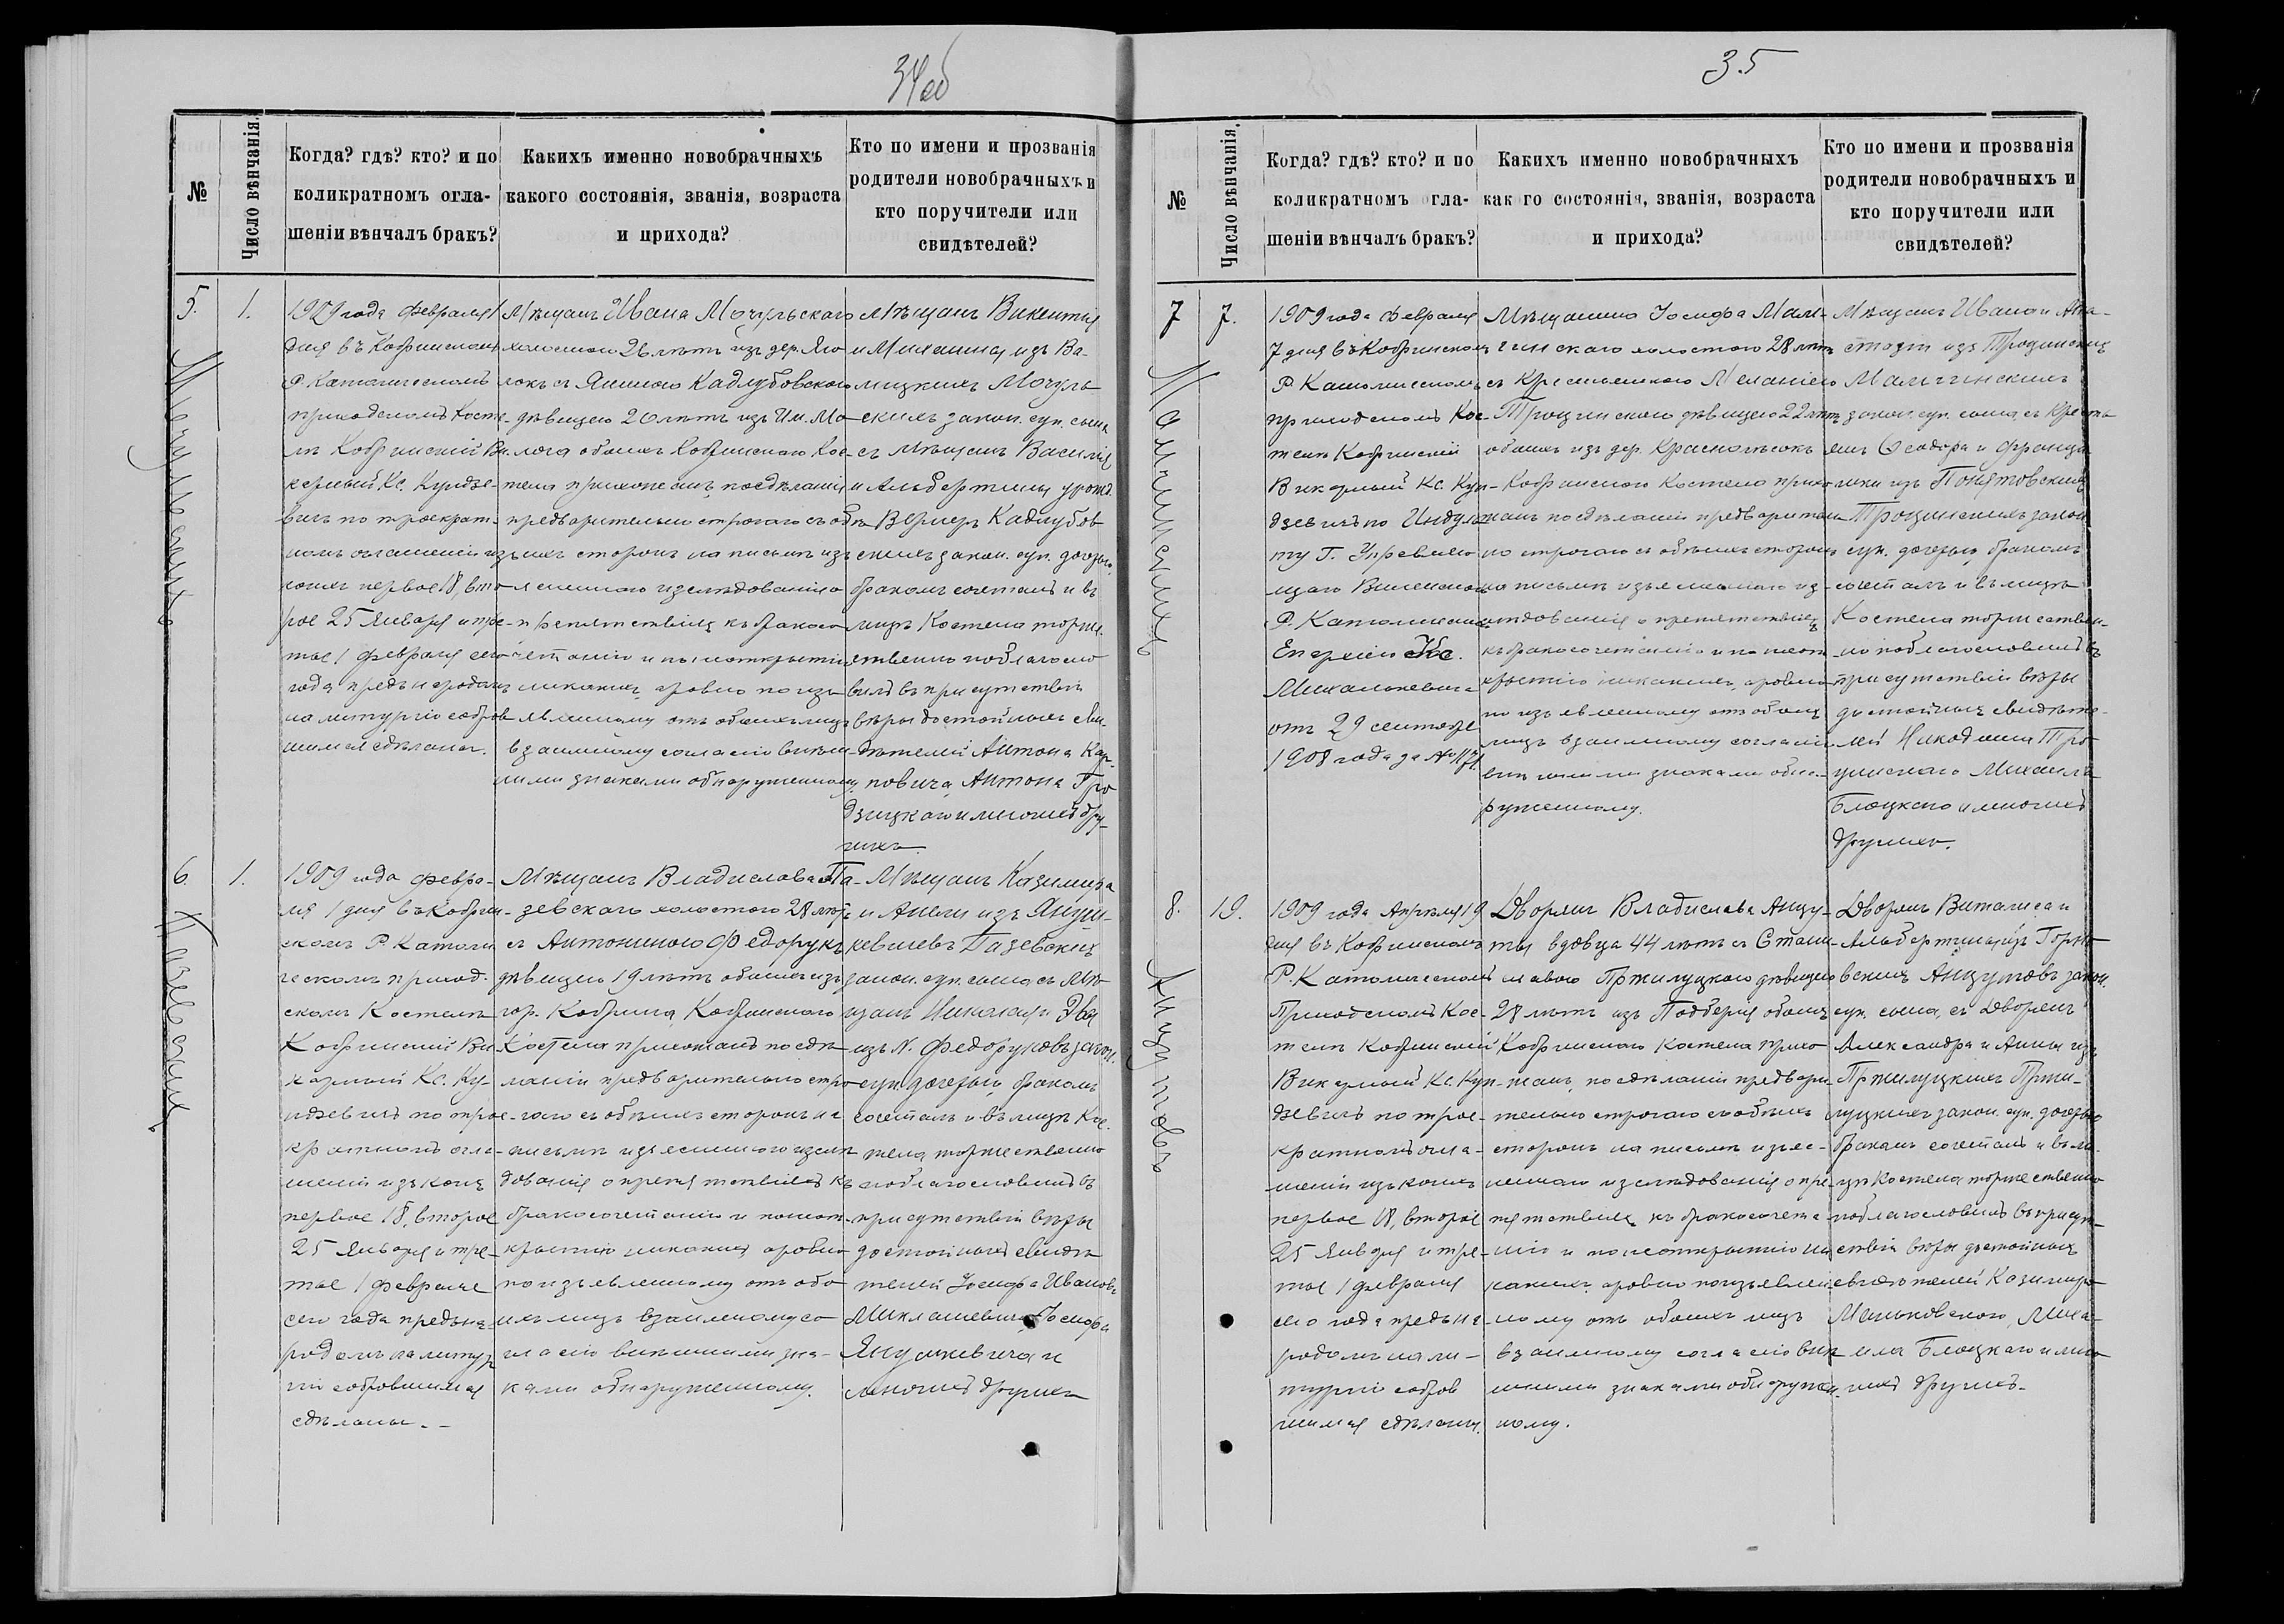 34об
№
Число вѣнчанія.
Когда? гдѣ? кто? и по
коликратномъ огла-
шеніи вѣнчалъ бракъ?
Какихъ именно новобрачныхъ
какого состоянія, званія, возраста
и прихода?
Кто по имени и прозванія
родители новобрачныхъ и
кто поручители или
свидѣтелей?
5.
1.
1909 года февраля 1
дня въ Кобринскомъ
Р. Католическомъ
приходскомъ Косте-
лѣ Кобринскій Ви-
карный Кс. Кундзе-
вичъ по троекрат-
номъ оглашеніи изъ
коихъ первое 18, вто-
рое 25 Января и тре-
тье 1 февраля сего
года предъ народомъ
на литургію собрав-
шимся сдѣланы.
Мѣщанъ Ивана Мочульскаго
холостого 26 лѣтъ изъ дер.
съ Яниною Кадлубовскою
дѣвицею 20 лѣтъ изъ Им. Мо-
лога обоихъ Кобринскаго Кос-
тела прихожанъ, послѣланія
предварительно строгаго съ обѣ-
ихъ сторонъ на письмѣ изъ-
ясненнаго изслѣдованія о
препятствіяхъ къ бракосо-
четанію и по неоткрытію
никакихъ, равно по изъ-
явленному отъ обоихъ лицъ
взаимному согласію внѣш-
ними знаками обнаруженному
Мѣщанъ Викентія
и Михалины изъ Ва-
лицкихъ Мочуль-
скихъ закон. суп. сына
съ Мѣщанъ Василія
и Альбертины урожд.
Вернеръ Кадлубов-
скихъ закон. суп. дочерью,
бракомъ сочеталъ и въ
лицѣ Костела торже-
ственно поблагосло-
вилъ въ присутствіи
вѣры достойныхъ сви-
дѣтелей Антона Кар-
повича, Антона Гро-
дзицкаго и многихъ дру-
гихъ.
Мочульскихъ
6.
1.
1909 года февра-
ля 1 дня въ Кобрин-
скомъ Р. Католи-
ческомъ приход-
скомъ Костелѣ
Кобринскій Ви-
карный Кс. Ку-
ндзевичъ по трое-
кратномъ огла-
шеніи изъ коихъ
первое 18, второе
25 Января и тре-
тье 1 февраля
сего года предъ на-
родомъ на литур-
гію собравшимся
сдѣланы.
Мѣщанъ Владислава Га-
зевскаго холостого 28 лѣтъ
съ Антониною Федорукъ
дѣвицею 19 лѣтъ обоихъ изъ
гор. Кобрина, Кобринскаго
Костела прихожанъ послѣ-
ланіи предварительно стро-
гаго съ обѣихъ сторонъ на
письмѣ изъясненнаго изслѣ-
дованія о препятствіяхъ къ
бракосочетанію и по неот-
крытію никакихъ, равно
по изъявленному отъ обо-
ихъ лицъ взаимному со-
гласію внѣшними зна-
ками обнаруженному.
Мѣщанъ Казимира
и Анели изъ Януш-
кевичевъ Газевскихъ
закон. суп. сына съ Мѣ-
щанъ Николая и Эвы
изъ N. Федоруковъ закон.
суп. дочерью, бракомъ
сочеталъ и въ лицѣ Кос-
тела торжественно
поблагословилъ въ
присутствіи вѣры
достойныхъ свидѣ-
телей Іосифа Иванова
Миклашевича, Іосифа
Янушкевича и
многихъ другихъ
Газевскихъ
35
№
Число вѣнчанія.
Когда? гдѣ? кто? и по
коликратномъ огла-
шеніи вѣнчалъ бракъ?
Какихъ именно новобрачныхъ
как го состоянія, званія, возраста
и прихода?
Кто по имени и прозванія
родители новобрачныхъ и
кто поручители или
свидѣтелей?
7
7.
1909 года февраля
7 дня въ Кобринскомъ
Р. Католическомъ
приходскомъ Кос-
телѣ Кобринскій
Викарный Кс. Кун-
дзевичъ по Индуль-
ту Г. Управляю-
щаго Виленскою
Р. Католическою
Епархіею Кс.
Михалькевича
отъ 29 сентября
1908 года за №
Мѣщанина Іосифа Маль-
чинскаго холостого 28 лѣтъ
съ Крестьянкою Меланіею
Троцинскою дѣвицею 22 лѣтъ
обоихъ изъ дер. Краснолѣсокъ
Кобринскаго Костела прихо-
жанъ послѣланіи предварительн-
но строгаго съ обѣихъ сторонъ
на письмѣ изъясненнаго из-
слѣдованія о препятствіяхъ
къ бракосочетанію и по неот-
крытію никакихъ, равно
по изъявленному отъ обоихъ
лицъ взаимному согласію
внѣшними знаками обна-
руженному.
Мѣщанъ Ивана и Ана-
стазіи изъ Троцинскихъ
Мальчинскихъ
закон. суп. сына, съ Кресть-
янъ Феодора и Францы-
шки изъ Понятовскихъ
Троцинскихъ закон.
суп. дочерью, бракомъ
сочеталъ и въ лицѣ
Костела торжествен-
но поблагословилъ въ
присутствіи вѣры
достойныхъ свидѣте-
лей Никодима Тро-
цинскаго Михаила
Блоцкаго и многихъ
другихъ.
Мальчинскихъ
8.
19.
1909 года Апрѣля 19
дня въ Кобринскомъ
Р. Католическомъ
Приходскомъ Кос-
телѣ Кобринскій
Викарный Кс. Кун-
дзевичъ по трое-
кратномъ огла-
шеніи изъ коихъ
первое 18, второе
25 Января и тре-
тье 1 февраля
сего года предъ на-
родомъ на ли-
тургію собрав-
шимся сдѣланы.
Дворянъ Владислава Анцу-
ты вдовца 44 лѣтъ съ Стани-
славою Пржилуцкою дѣвицею
28 лѣтъ изъ Подберья обоихъ
Кобринскаго костела прихо-
жанъ, послѣланіи предвари-
тельно строгаго съ обѣихъ
сторонъ на письмѣ изъяс-
неннаго изслѣдованія о пре-
пятствіяхъ къ бракосочета-
нію и по неоткрытію ни-
какихъ, равно по изъявлен-
ному отъ обоихъ лицъ
взаимному согласію внѣ-
шними знаками обнаружен-
ному.
Дворянъ Виталиса и
Альбертины изъ
вскихъ Анцутовъ закон.
суп. сына, съ Дворянъ
Александра и Анны изъ
Пржилуцкихъ Пржи-
луцкихъ закон. суп. дочерью
бракомъ сочеталъ и въ ли-
цѣ Костела торжественно
поблагословилъ въ присут-
ствіи вѣры достойныхъ
свидѣтелей Казимира
Маньковского, Миха-
ила Блоцкаго и мно-
гихъ другихъ.
Анцутовъ